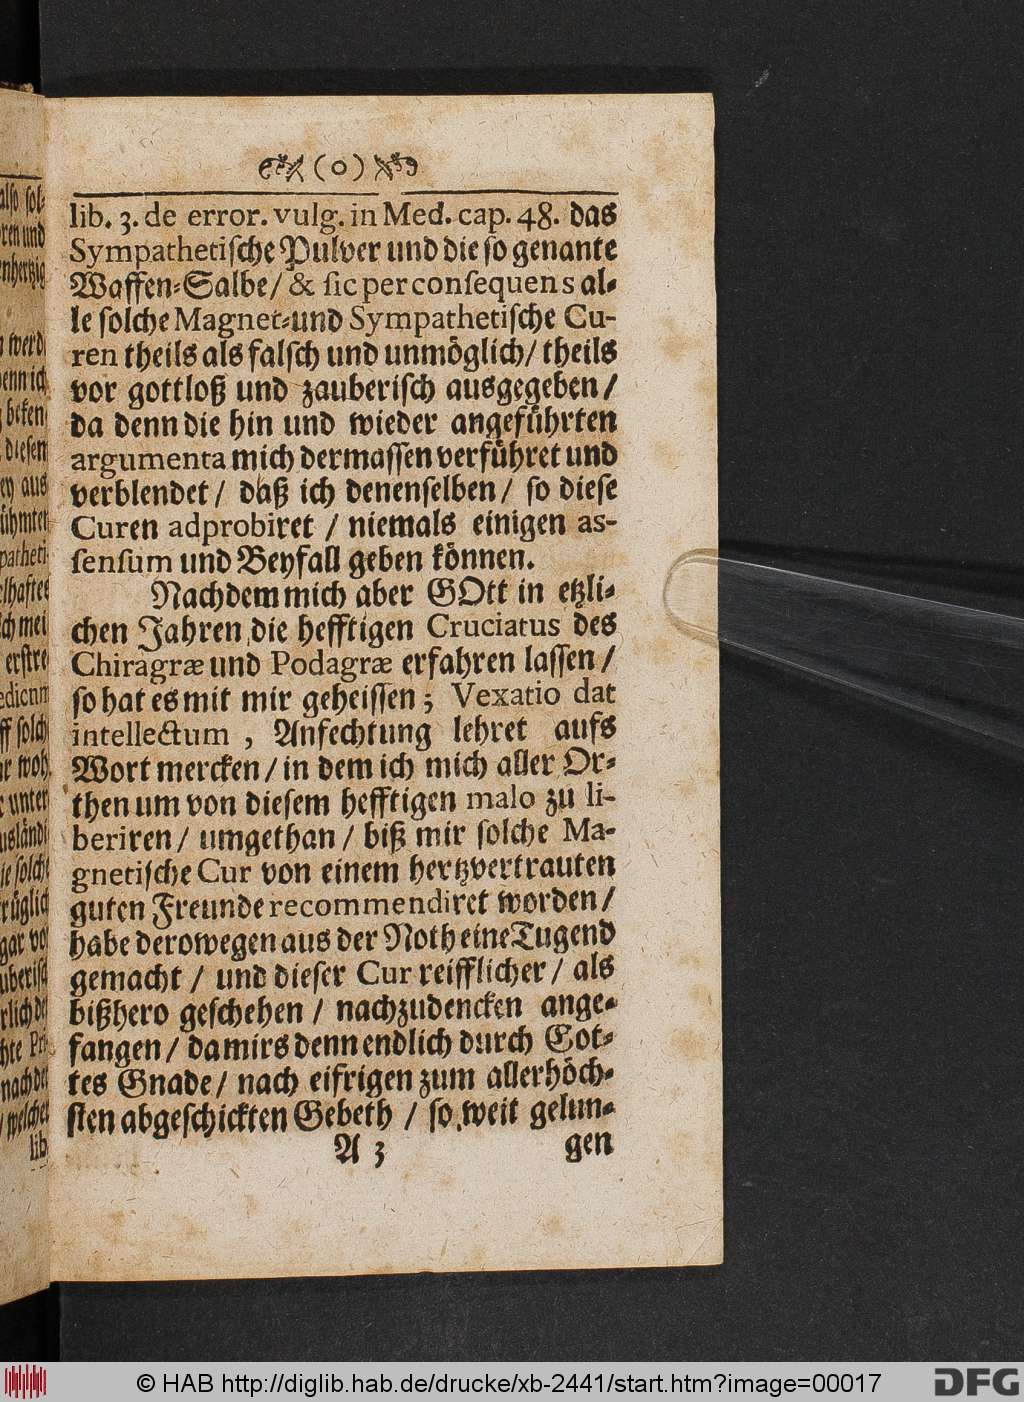 (o)
lib. 3. de error. vulg. in Med. cap. 48. das
Sympathetische Pulver und die so genante
Waffen-Salbe/ & sic per consequens al-
le solche Magnet-und Sympathetische Cu-
ren theils als falsch und unmöglich/ theils
vor gottloß und zauberisch ausgegeben/
da denn die hin und wieder angeführten
argumenta mich dermassen verführet und
verblendet/ daß ich denenselben/ so diese
Curen adprobiret / niemals einigen as-
sensum und Beyfall geben können.
Nachdem mich aber GOtt in etzli-
chen Jahren die hefftigen Cruciatus des
Chiragræ und Podagræ erfahren lassen/
so hat es mit mir geheissen; Vexatio dat
intellectum, Anfechtung lehret aufs
Wort mercken/ in dem ich mich aller Or-
then um von diesem hefftigen malo zu li-
beriren/ umgethan/ biß mir solche Ma-
gnetische Cur von einem hertzvertrauten
guten Freunde recommendiret worden/
habe derowegen aus der Noth eine Tugend
gemacht / und dieser Cur reifflicher/ als
bißhero geschehen / nachzudencken ange-
fangen/ da mirs denn endlich durch Got-
tes Gnade/ nach eifrigen zum allerhöch-
sten abgeschickten Gebeth / so weit gelun-
A 3 gen
also sol-
ren und
enhertzig
werd
enn ich
beken
diesen
ey aus
ühmter
patheti-
elhaftes
ch mei
erstre
edicum
ff solch
ir woh
unter
usländi
ie solch
rüglich
gar vo
uberisch
rlich de
hte Pri
nach de
/welches
lib.
© HAB http://diglib.hab.de/drucke/xb-2441/start.htm?image=00017
DFG